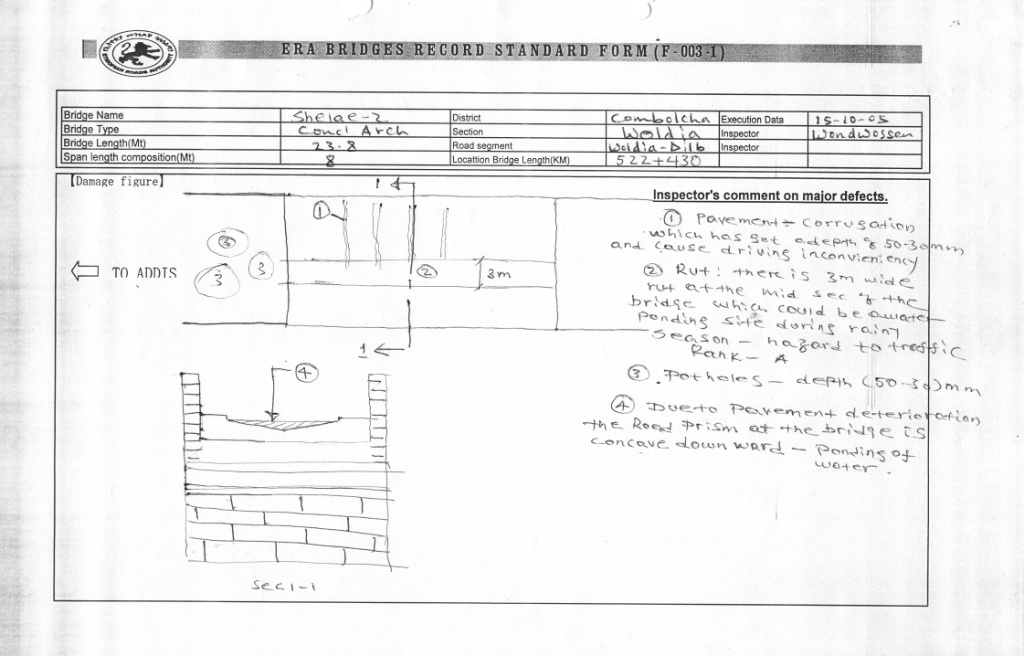 ERA BRIDGES RECORD STANDARD FORM (F-003-1)
Bridge Name Shelae-2 District Combolcha Execution Data 15-10-05
Bridge Type Concl Arch Section Woldia Inspector Wondwossen
Bridge Length(Mt) 23.8 Road segment Woldia-Dilb Inspector
Span length composition(Mt) 8 Locattion Bridge Length(KM) 522+430
[Damage figure]
Inspector's comment on major defects.
1
① Pavement = Corrugation
which has got a depth of 50-30mm
and cause driving inconvieniency
② Rut: there is 3m wide
rut at the mid sec of the
bridge which could be awater
Ponding site during rainy
Season - hazard to traffic
Rank - A
③ .Potholes - depth (50-30)mm
④ Due to Pavement deterioration
the Road Prism at the bridge is
Concave down ward - Ponding of
water.
①
③
3
3
TO ADDIS
②
3m
1
④
Sec 1-1